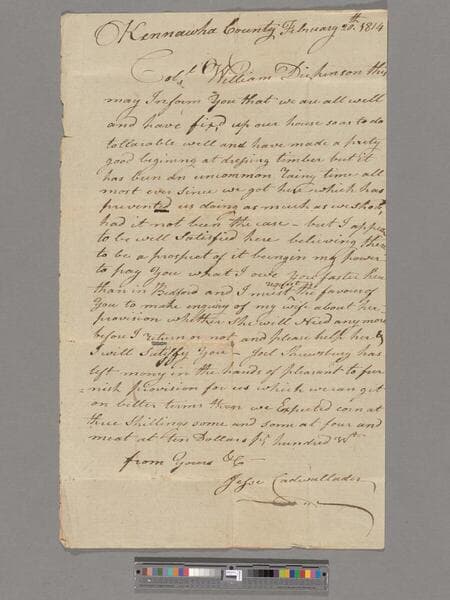 Kennawha County February 20th. 1814
Colo. William Dickinson this
may Inform You that we are all well
and have fixd up our house so as to do
tollarable well and have made a prity
good begining at dresping timber but it
has bun an uncommon rainy time all
most ever since we got here which has
prevented us doing as much as we should
had it not been the case - but I appear
to be will Satisfied here believing there
to be a prospect of it being in my power
to pay You what I owe You faster here
than in Bedford and I must request the favour of
You to make enquiry of my wife about her
provision whether She will Need any more
before I return or not and please help her &
I will Satisfy You - Joel Shrewsbury has
left mony in the hands of pleasant to fur
=nish provision for us which we can get
on better terms than we Expected corn at
three Shillings some and some at four and
meat at ten Dollars pr hundred Wt
from Yours &C
Jesse Cadwallader